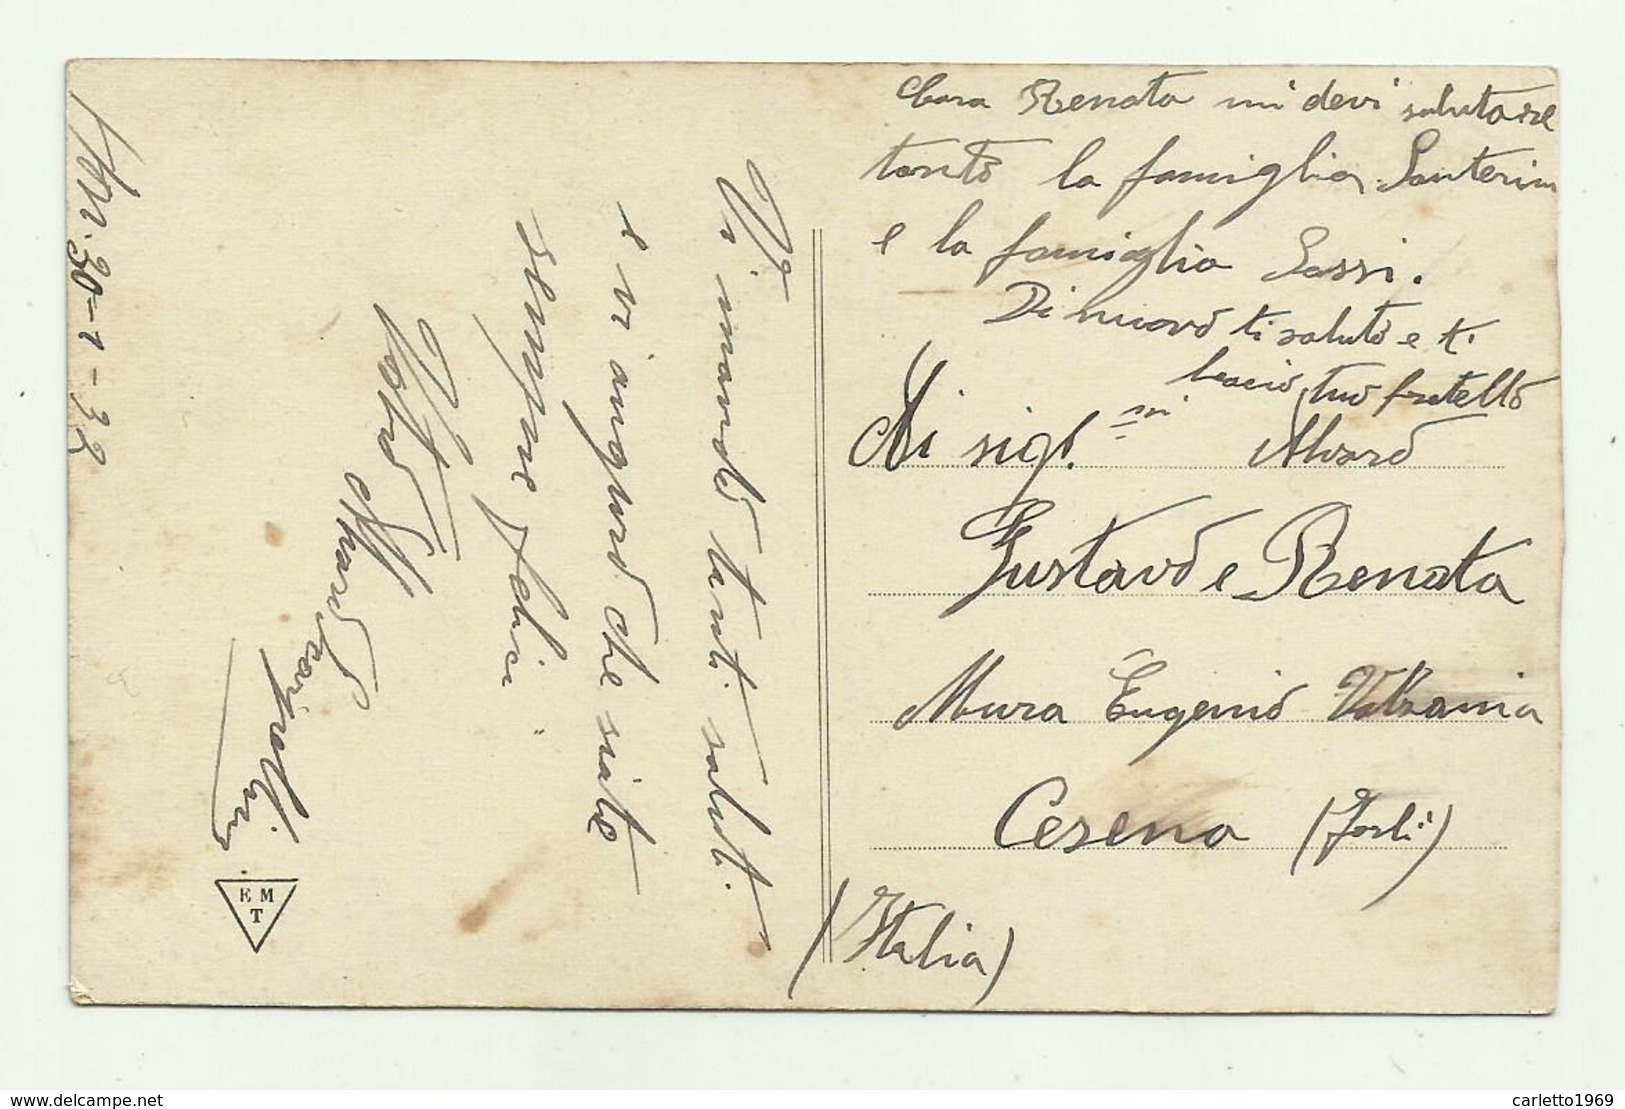 30-1-32
Vi mando tanti saluti
e vi auguro che siate
sempre felici
Vostro Alvaro
Scarpellini
E M
T
Cara Renata mi devi salutare
tanto la famiglia Santerini
e la famiglia Sassi.
Di nuovo ti saluto e ti
bacio, tuo fratello
Alvaro
Ai sigl.mi
Gustavo e Renata
Mura Eugenio Valzania
Cesena (Forlì)
(Italia)
delcampe.net
carletto1969